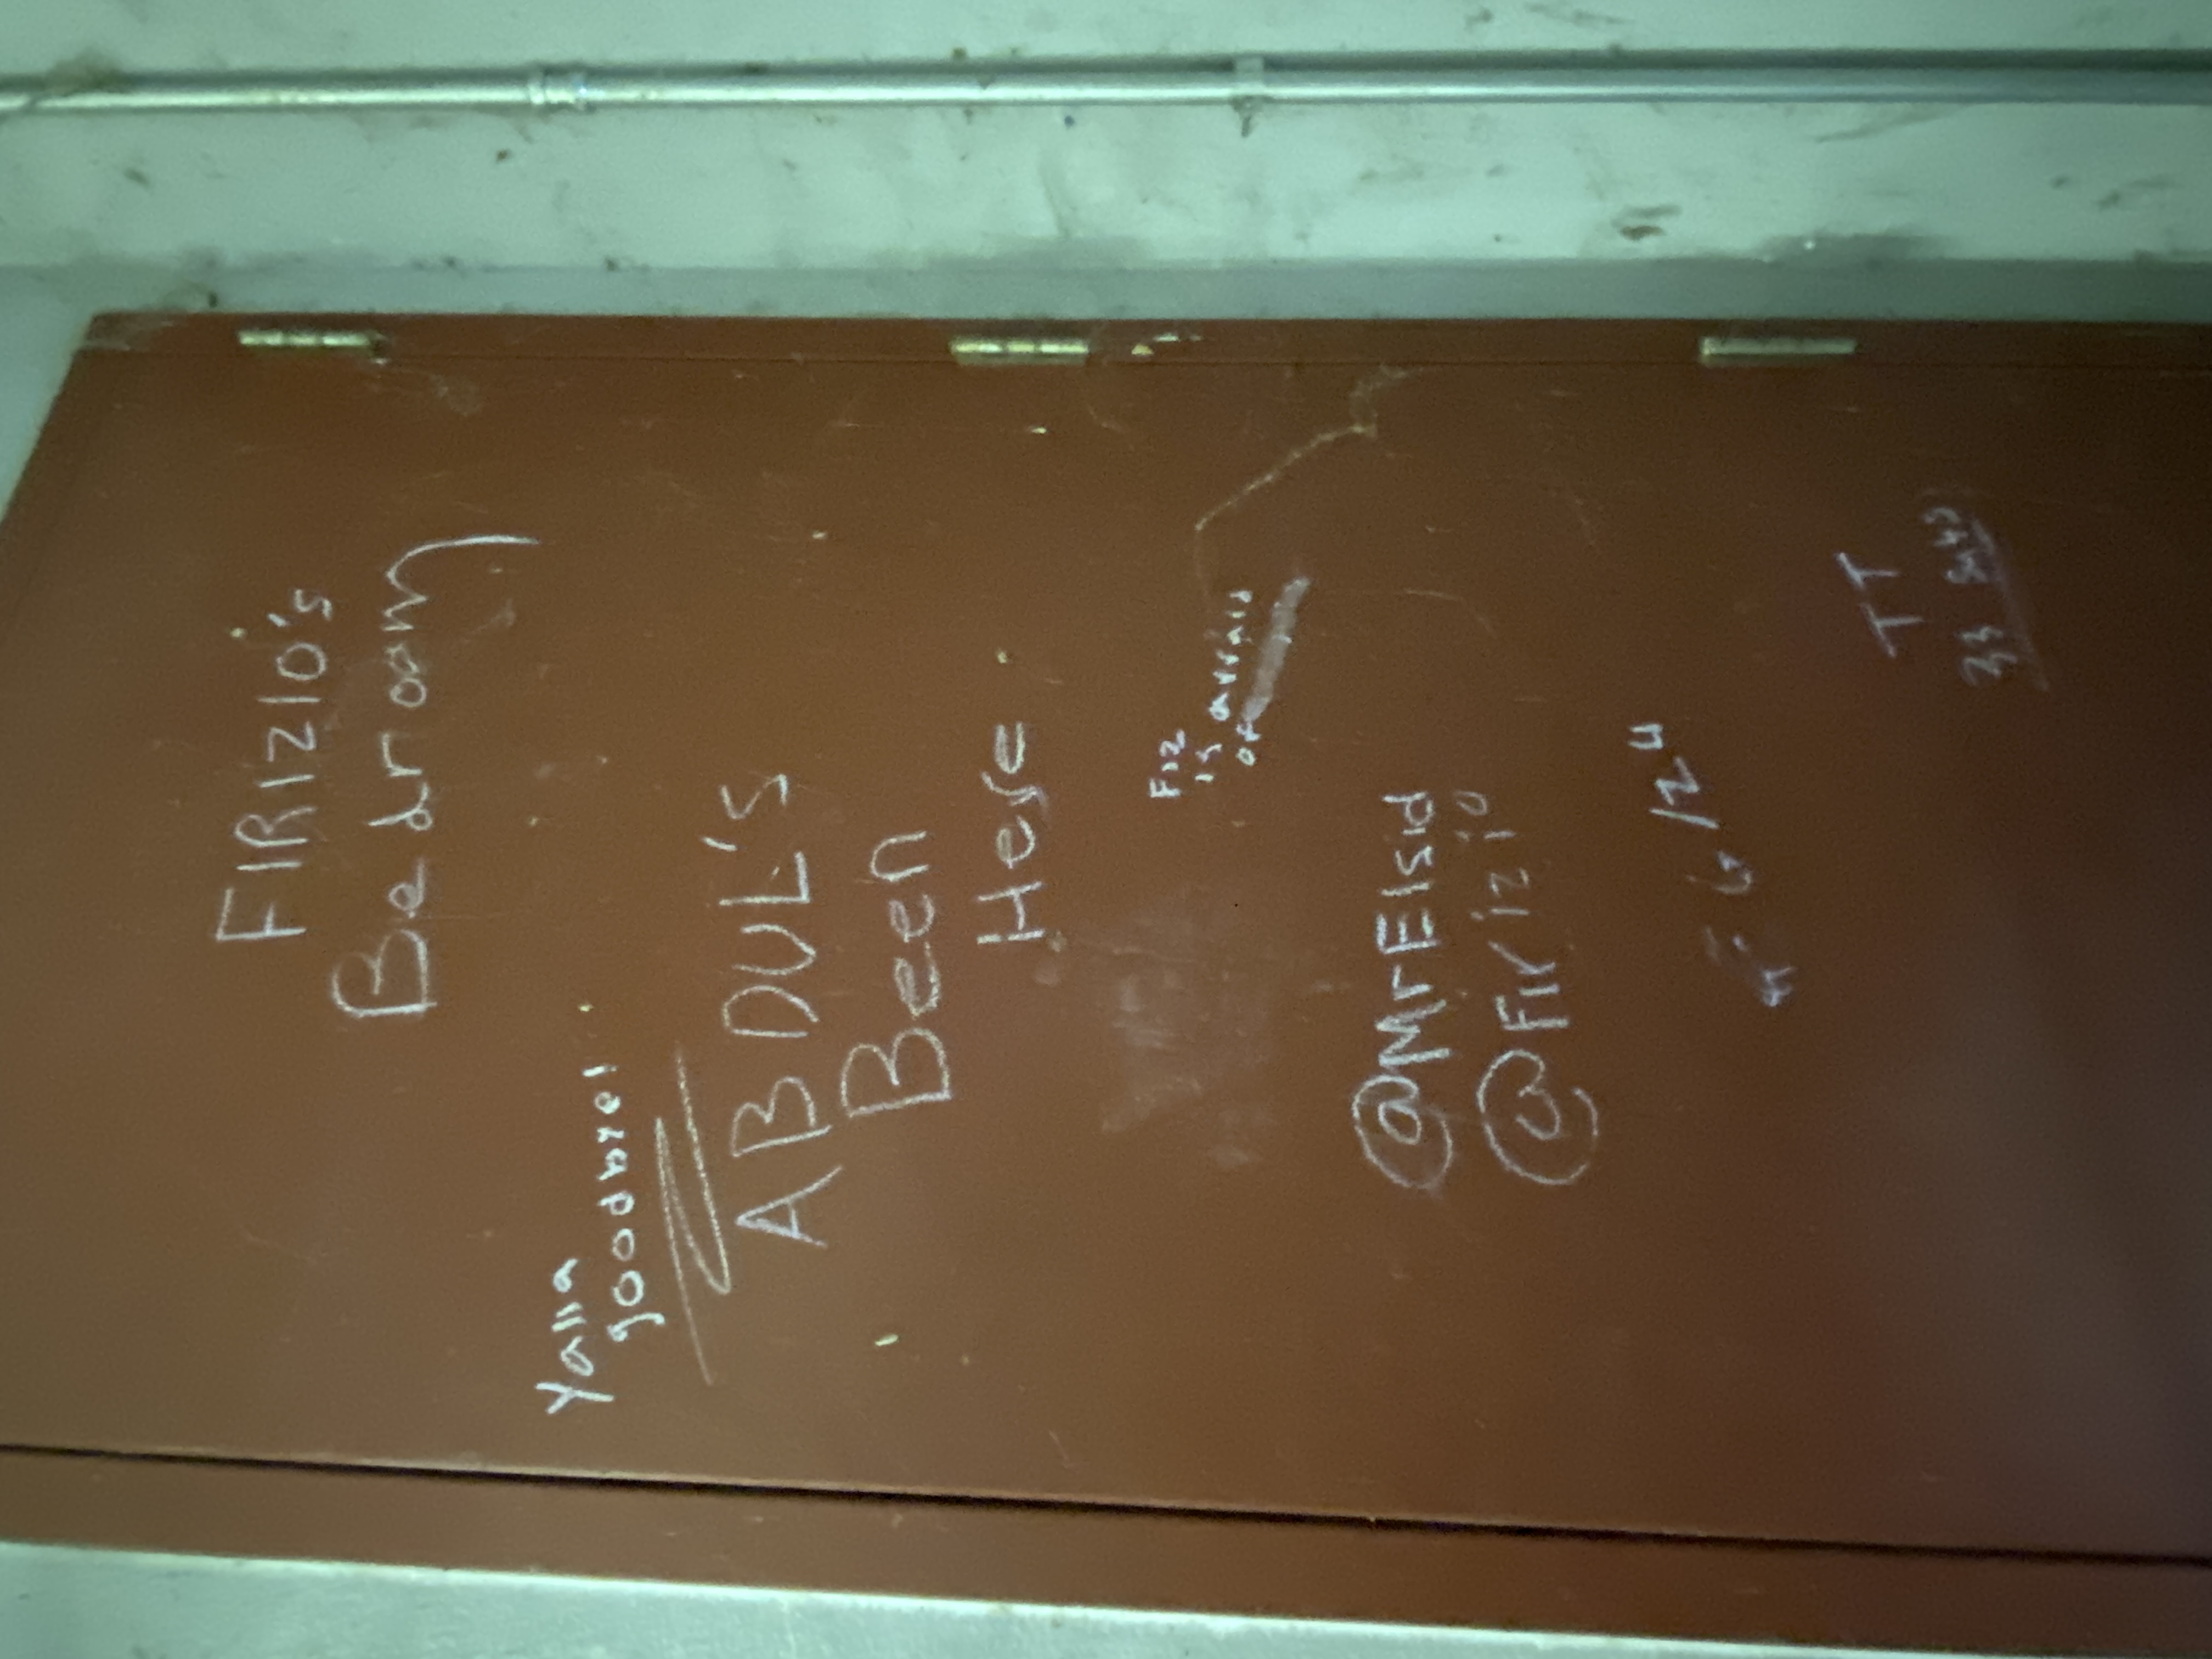 FIRIZIO's
Bedroom
Yalla
goodbye!
ABDUL'S
Been
Here
Fiz
is afraid
of
@MrElsid
@Firizio
6/24
TT
33 subs